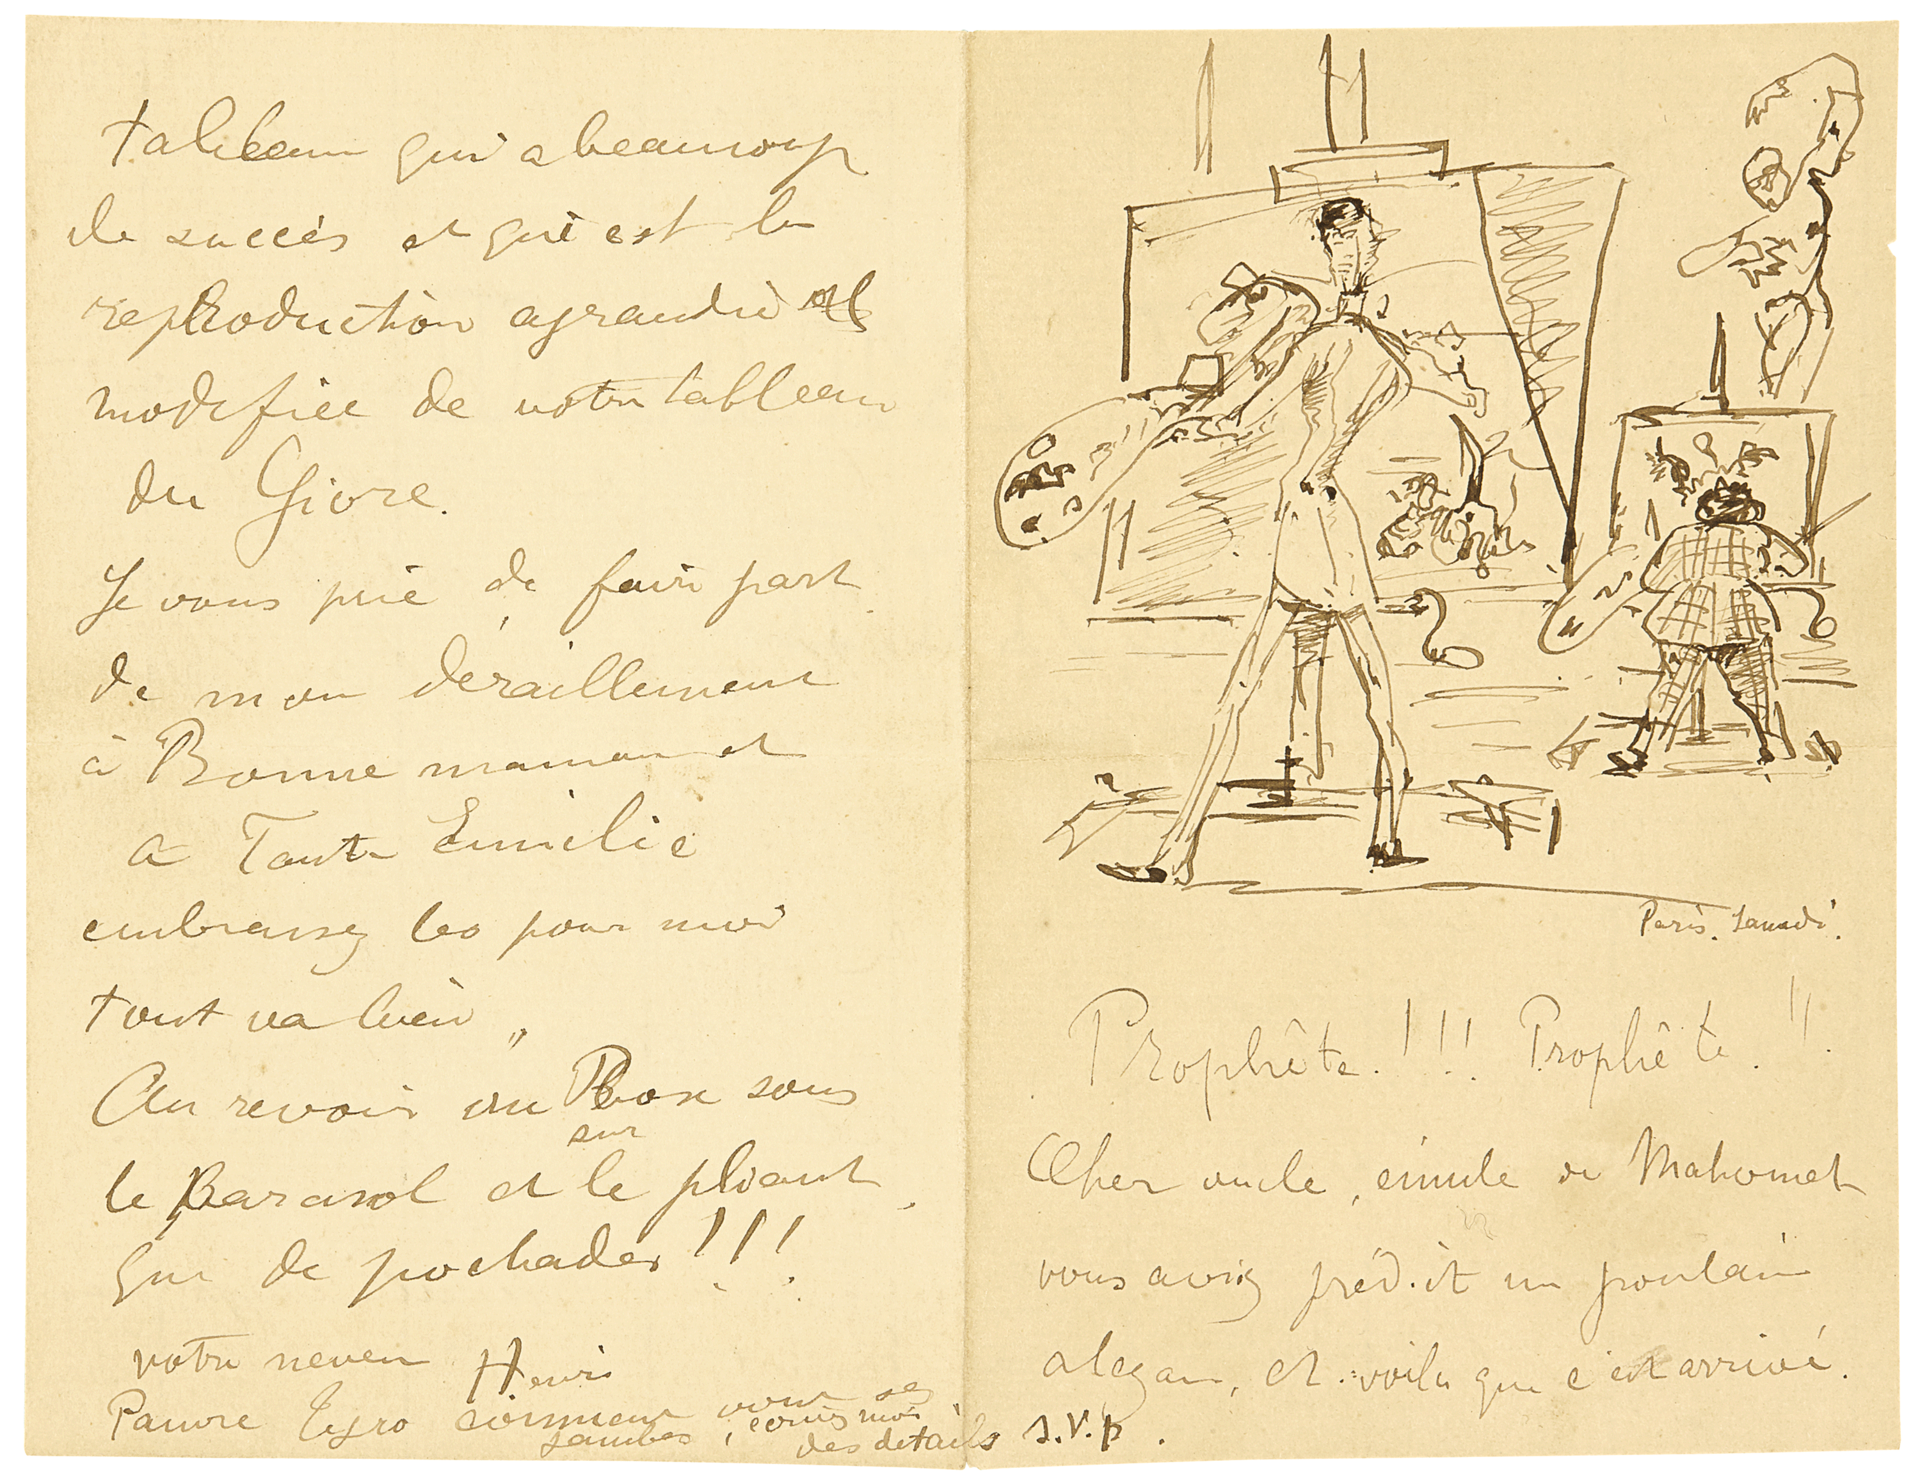 tableau qui a beaucoup
de succès et qui est la
reproduction agrandie et
modifiée de votre tableau
du Givre.
Je vous prie de faire part
de mon déraillement
à Bonne maman et
a Tante Emilie
embrassez les pour moi
tout va bien „
Au revoir sous
sur
le Parasol et le pliant.
que de pochades !!!
votre neveu Henri
Pauvre Tyro comment vont ses
jambes, écrivez moi
des détails s.v.p.
Paris. Samedi.
Prophête.!!! Prophête.!!
Cher oncle, émule de Mahomet
vous aviez prédit un poulain
alezan, et voila que c'est arrivé.